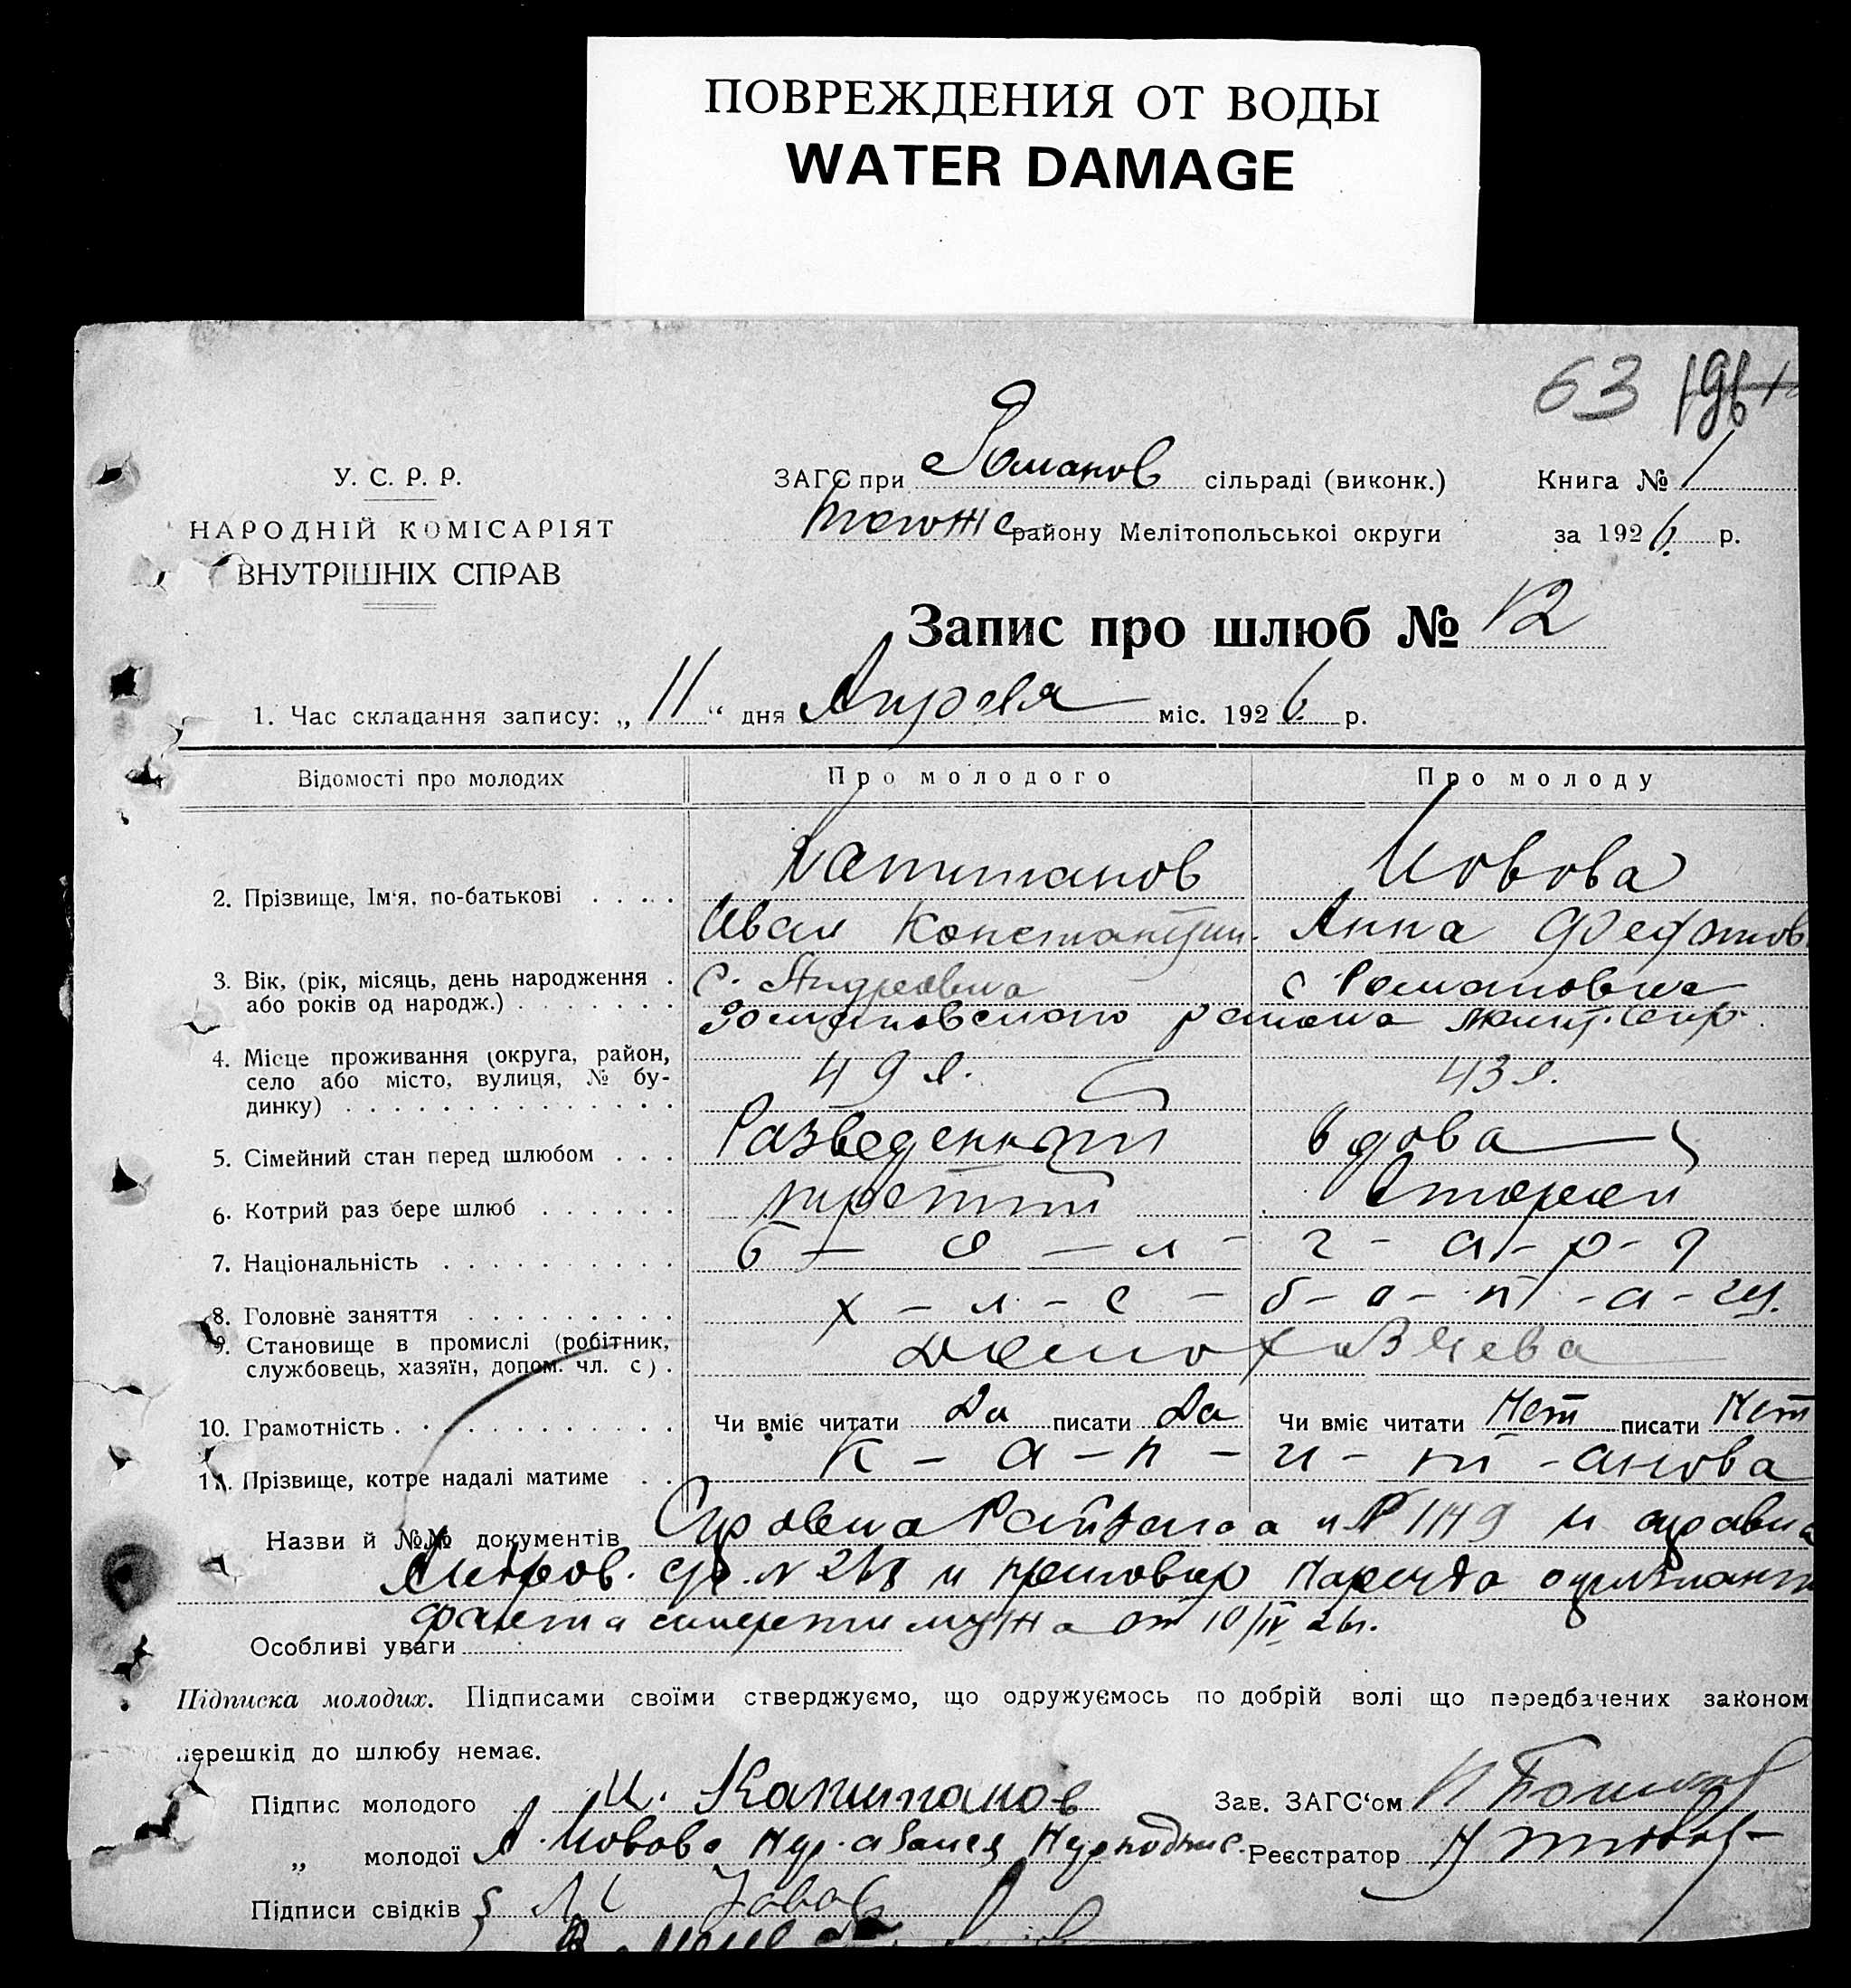 ПОВРЕЖДЕНИЯ ОТ ВОДЫ
WATER DAMAGE
63
У. С. Р. Р.
НАРОДНІЙ КОМІСАРІЯТ
ВНУТРІШНІХ СПРАВ
ЗАГС при Романов сільраді (виконк.)
того же району Мелітопольської округи
Книга № 1
за 1926 р.
Запис про шлюб № 12
1. Час складання запису: „ 11 “ дня Апреля міс. 1926 р.
Відомості про молодих Про молодого Про молоду
2. Прізвище, Ім'я, по-батькові . . . . Капитанов Иовова
Иван Константин. Анна
3. Вік, (рік, місяць, день народження . с. Андреевка с Романовка
або років од народж.) . . . . . . .
Романовского района
4. Місце проживання (округа, район, 49 л. 43 л.
село або місто, вулиця, № бу-
динку) . . . . . . . . . . . . . .
5. Сімейний стан перед шлюбом . . . Разведенный вдова
6. Котрий раз бере шлюб . . . . . . третий
7. Національність . . . . . . . . . . б – о – л – г – а – р – ы
8. Головне заняття . . . . . . . . . х – л – е – б – о – п – а – ш.
9. Становище в промислі (робітник,
службовець, хазяїн, допом. чл. с) . Домохозяева
10. Грамотність . . . . . . . . . . . . Чи вміє читати Да писати Да Чи вміє читати Нет писати Нет
11. Прізвище, котре надалі матиме . . К – а – п – и – т – анова
Назви й №№ документів Справка № 1149 и справка
и приговор Нарсуда
факта смерти мужа от 10/IV 26 г.
Особливі уваги
Підписка молодих. Підписами своїми стверджуємо, що одружуємось по добрій волі що передбачених законом
перешкід до шлюбу немає.
Підпис молодого И. Капитанов Зав. ЗАГС‘ом
„ молодої А. Иовова Реєстратор
Підписи свідків